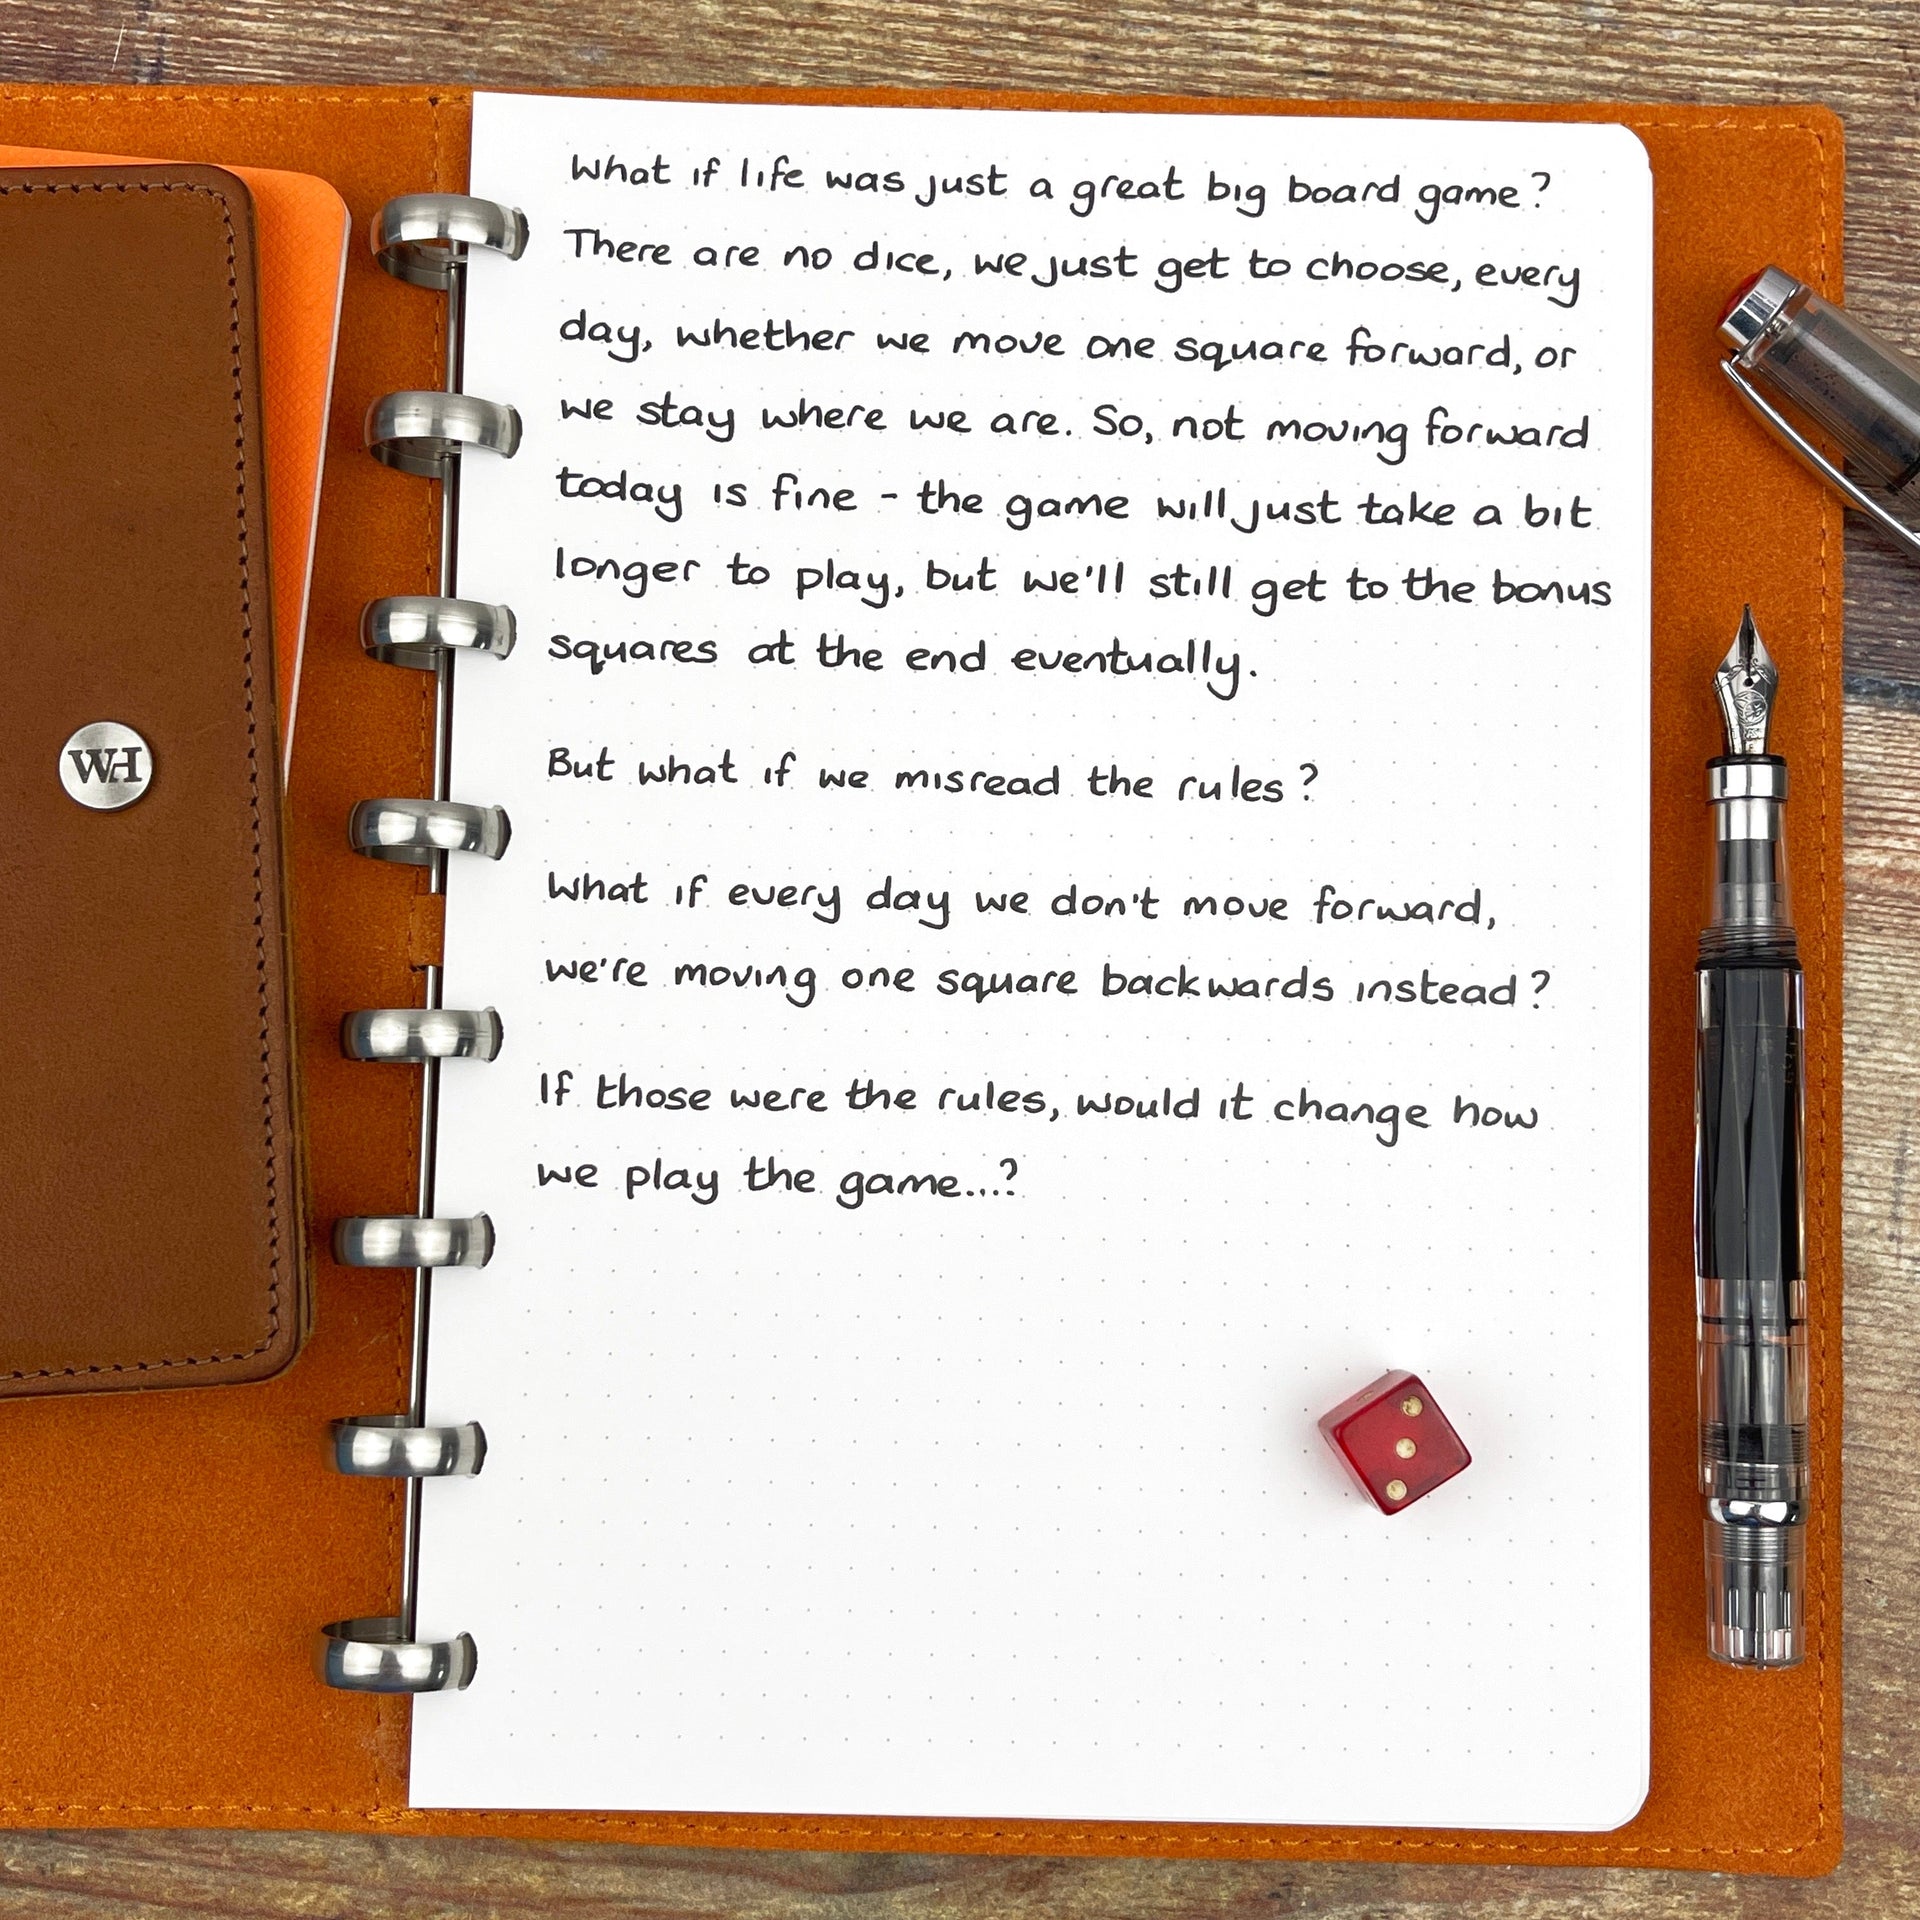 What if life was just a great big board game?
There are no dice, we just get to choose, every
day, whether we move one square forward, or
we stay where we are. So, not moving forward
today is fine - the game will just take a bit
longer to play, but we'll still get to the bonus
squares at the end eventually.
But what if we misread the rules?
What if every day we don't move forward,
we're moving one square backwards instead?
If those were the rules, would it change how
we play the game...?
WH